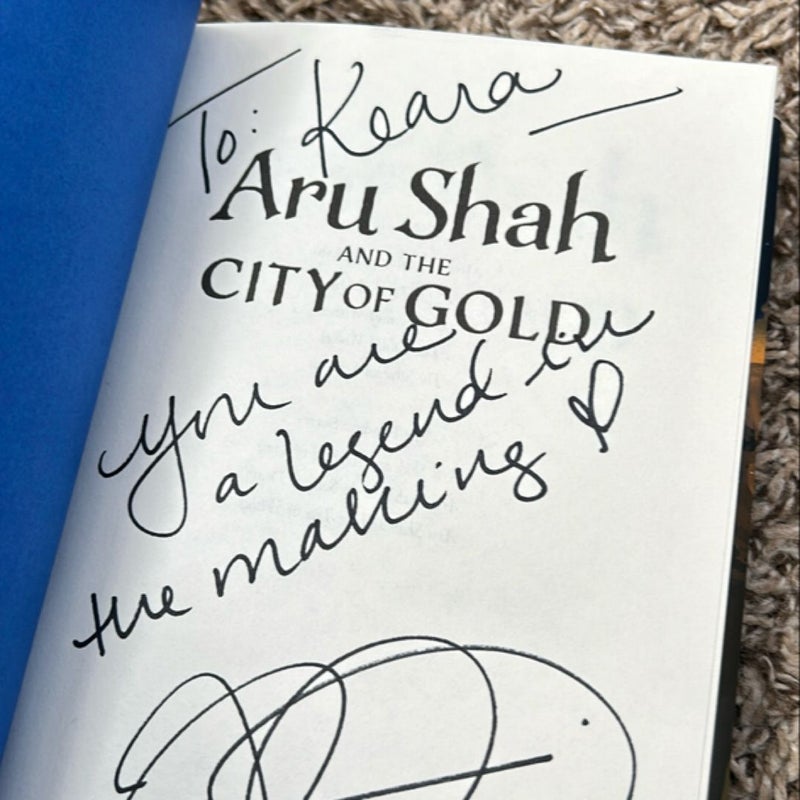 To: Keara
Aru Shah
AND THE
CITY OF GOLD
you are
a legend in
the making